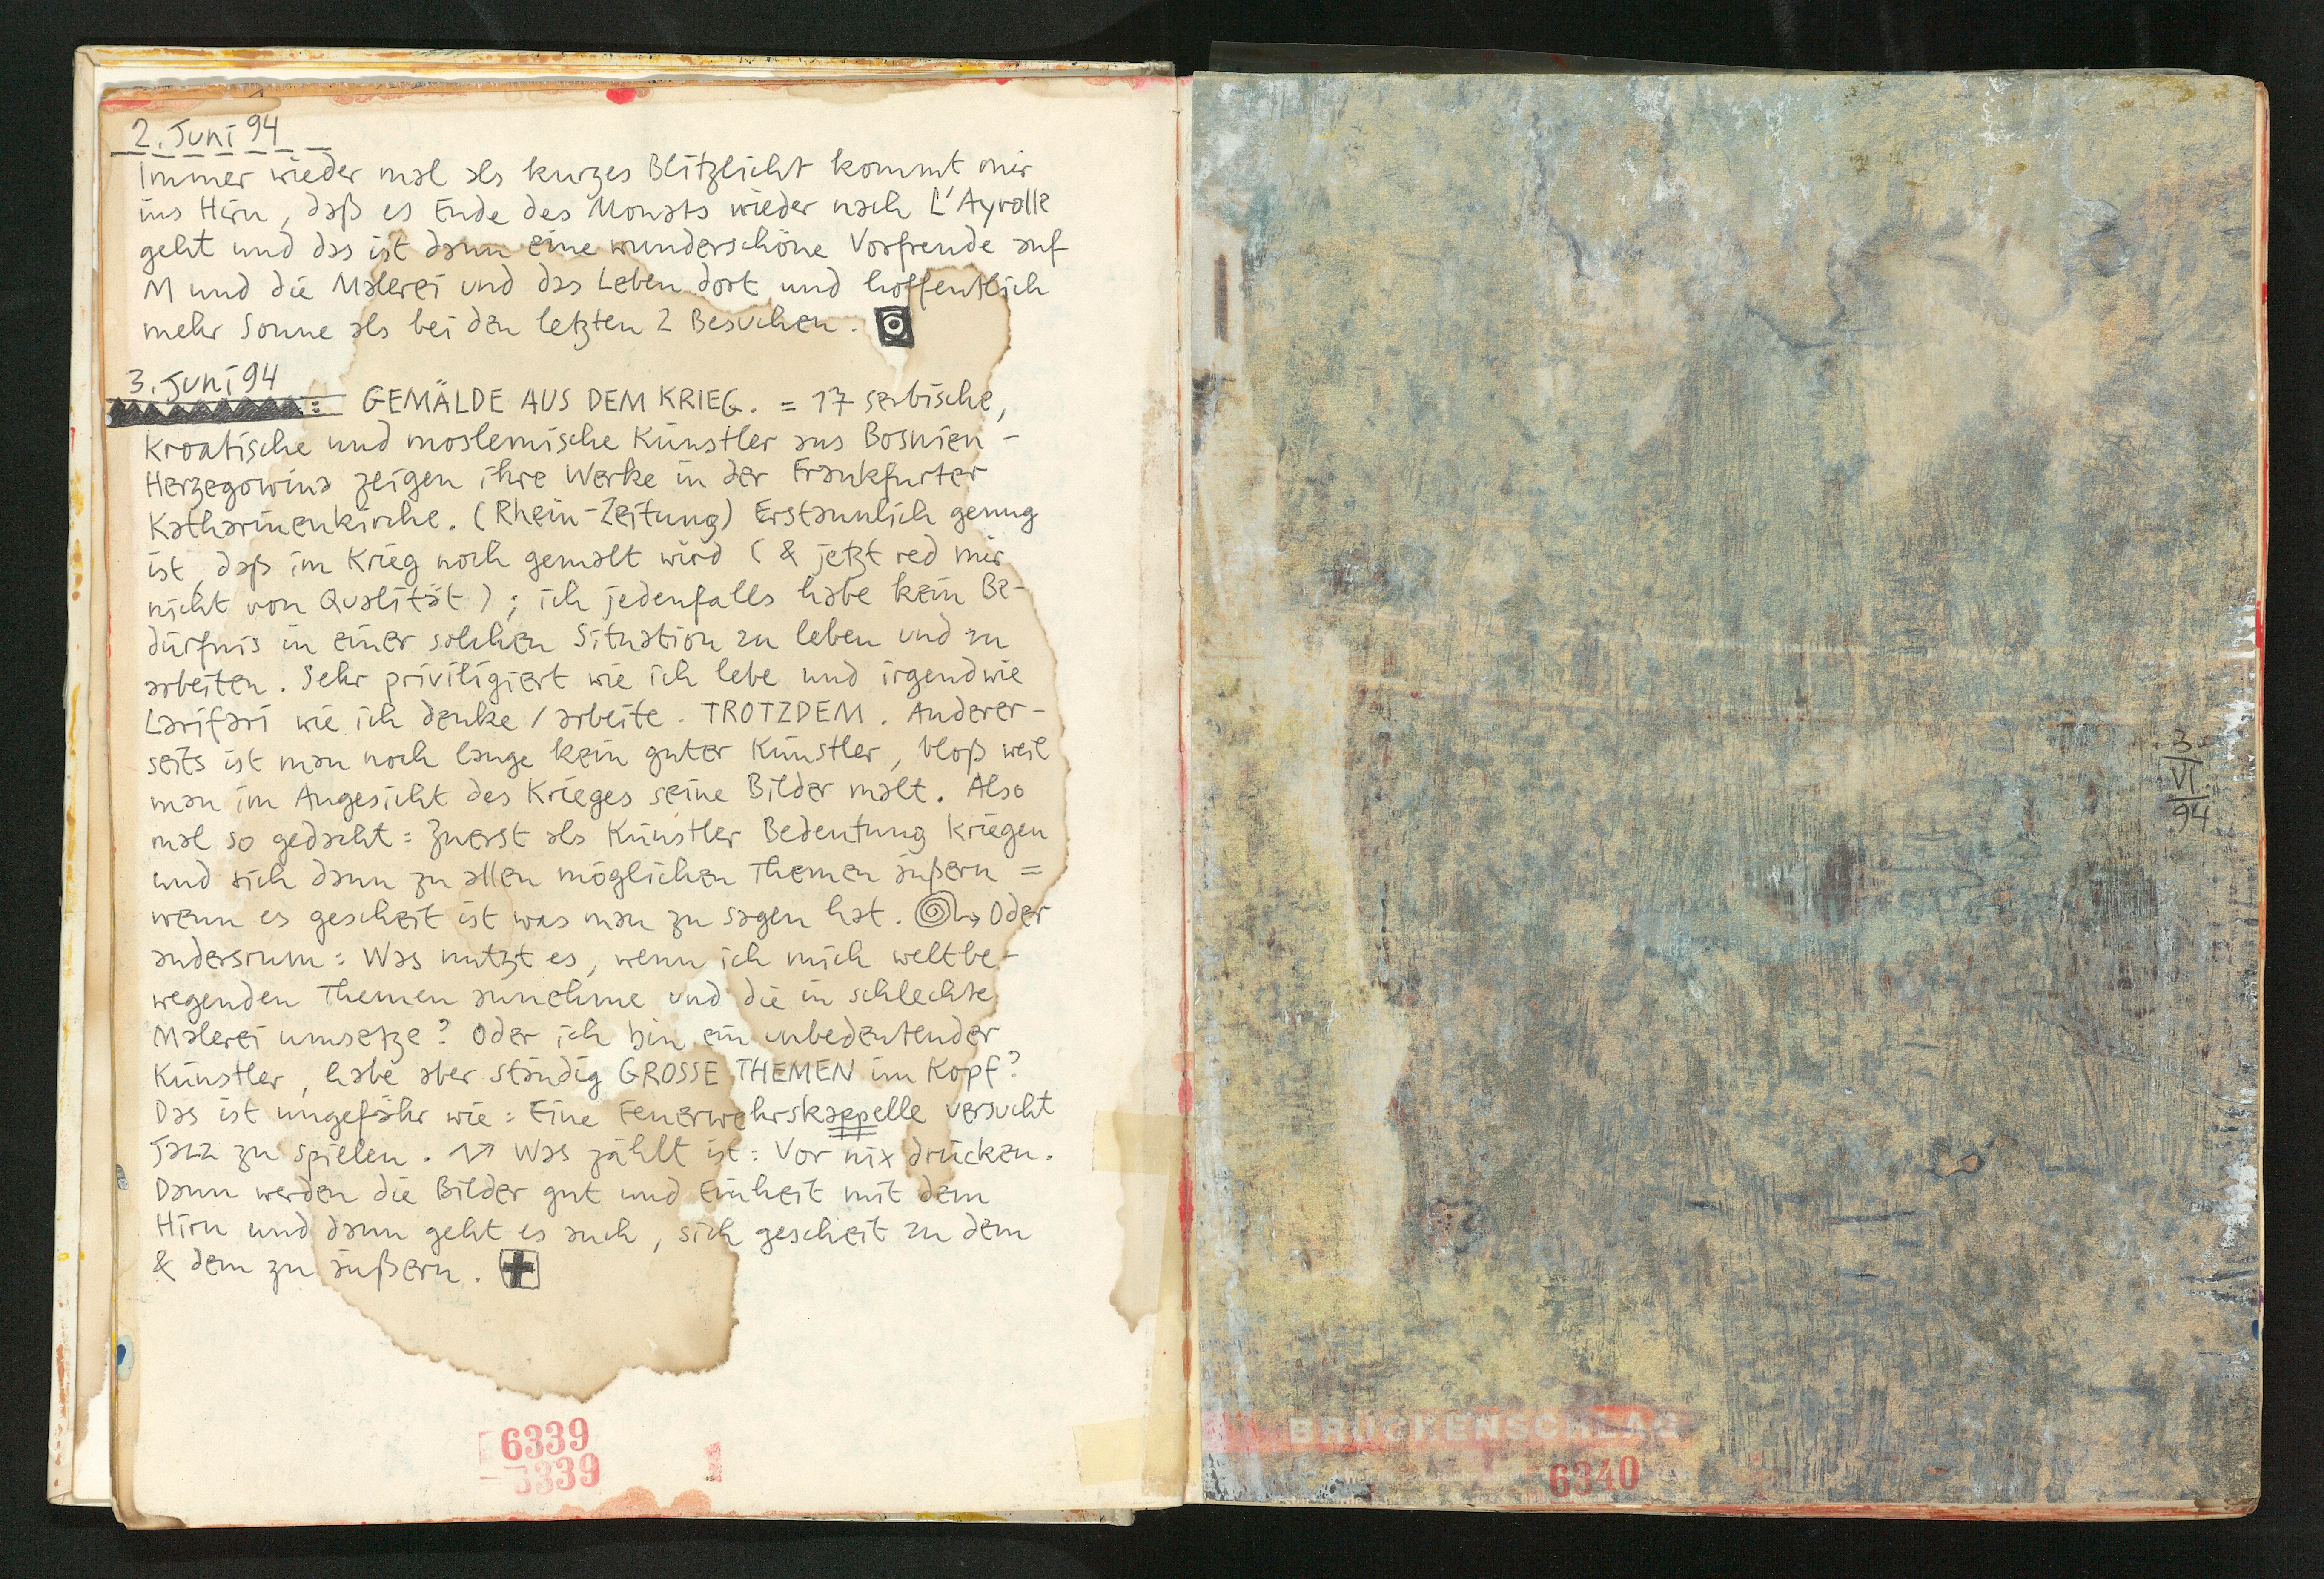 2. Juni 94
Immer wieder mal als kurzes Blitzlicht kommt mir
ins Hirn, daß es Ende des Monats wieder nach L'Ayrolle
geht und das ist dann eine wunderschöne Vorfreude auf
M und die Malerei und das Leben dort und hoffentlich
mehr Sonne als bei den letzten 2 Besuchen.
3. Juni 94
: GEMÄLDE AUS DEM KRIEG. = 17 serbische,
kroatische und moslemische Künstler aus Bosnien-
Herzegowina zeigen ihre Werke in der Frankfurter
Katharinenkirche. (Rhein-Zeitung) Erstaunlich genug
ist, daß im Krieg noch gemalt wird (& jetzt red mir
nicht von Qualität); ich jedenfalls habe kein Be-
dürfnis in einer solchen Situation zu leben und zu
arbeiten. Sehr priviligiert wie ich lebe und irgendwie
Larifari wie ich denke / arbeite. TROTZDEM. Anderer-
seits ist man noch lange kein guter Künstler, bloß weil
man im Angesicht des Krieges seine Bilder malt. Also
mal so gedacht: Zuerst als Künstler Bedeutung kriegen
und sich dann zu allen möglichen Themen äußern =
wenn es gescheit ist was man zu sagen hat. Oder
andersrum: Was nutzt es, wenn ich mich weltbe-
wegenden Themen annehme und die in schlechte
Malerei umsetze? Oder ich bin ein unbedeutender
Künstler, habe aber ständig GROSSE THEMEN im Kopf?
Das ist ungefähr wie: Eine Feuerwehrskappelle versucht
Jazz zu spielen. Was zählt ist: Vor nix drücken.
Dann werden die Bilder gut und Einheit mit dem
Hirn und dann geht es auch, sich gescheit zu dem
& dem zu äußern.
6339
3339
3
VI
94
BRÜCKENSCHLAG
6340